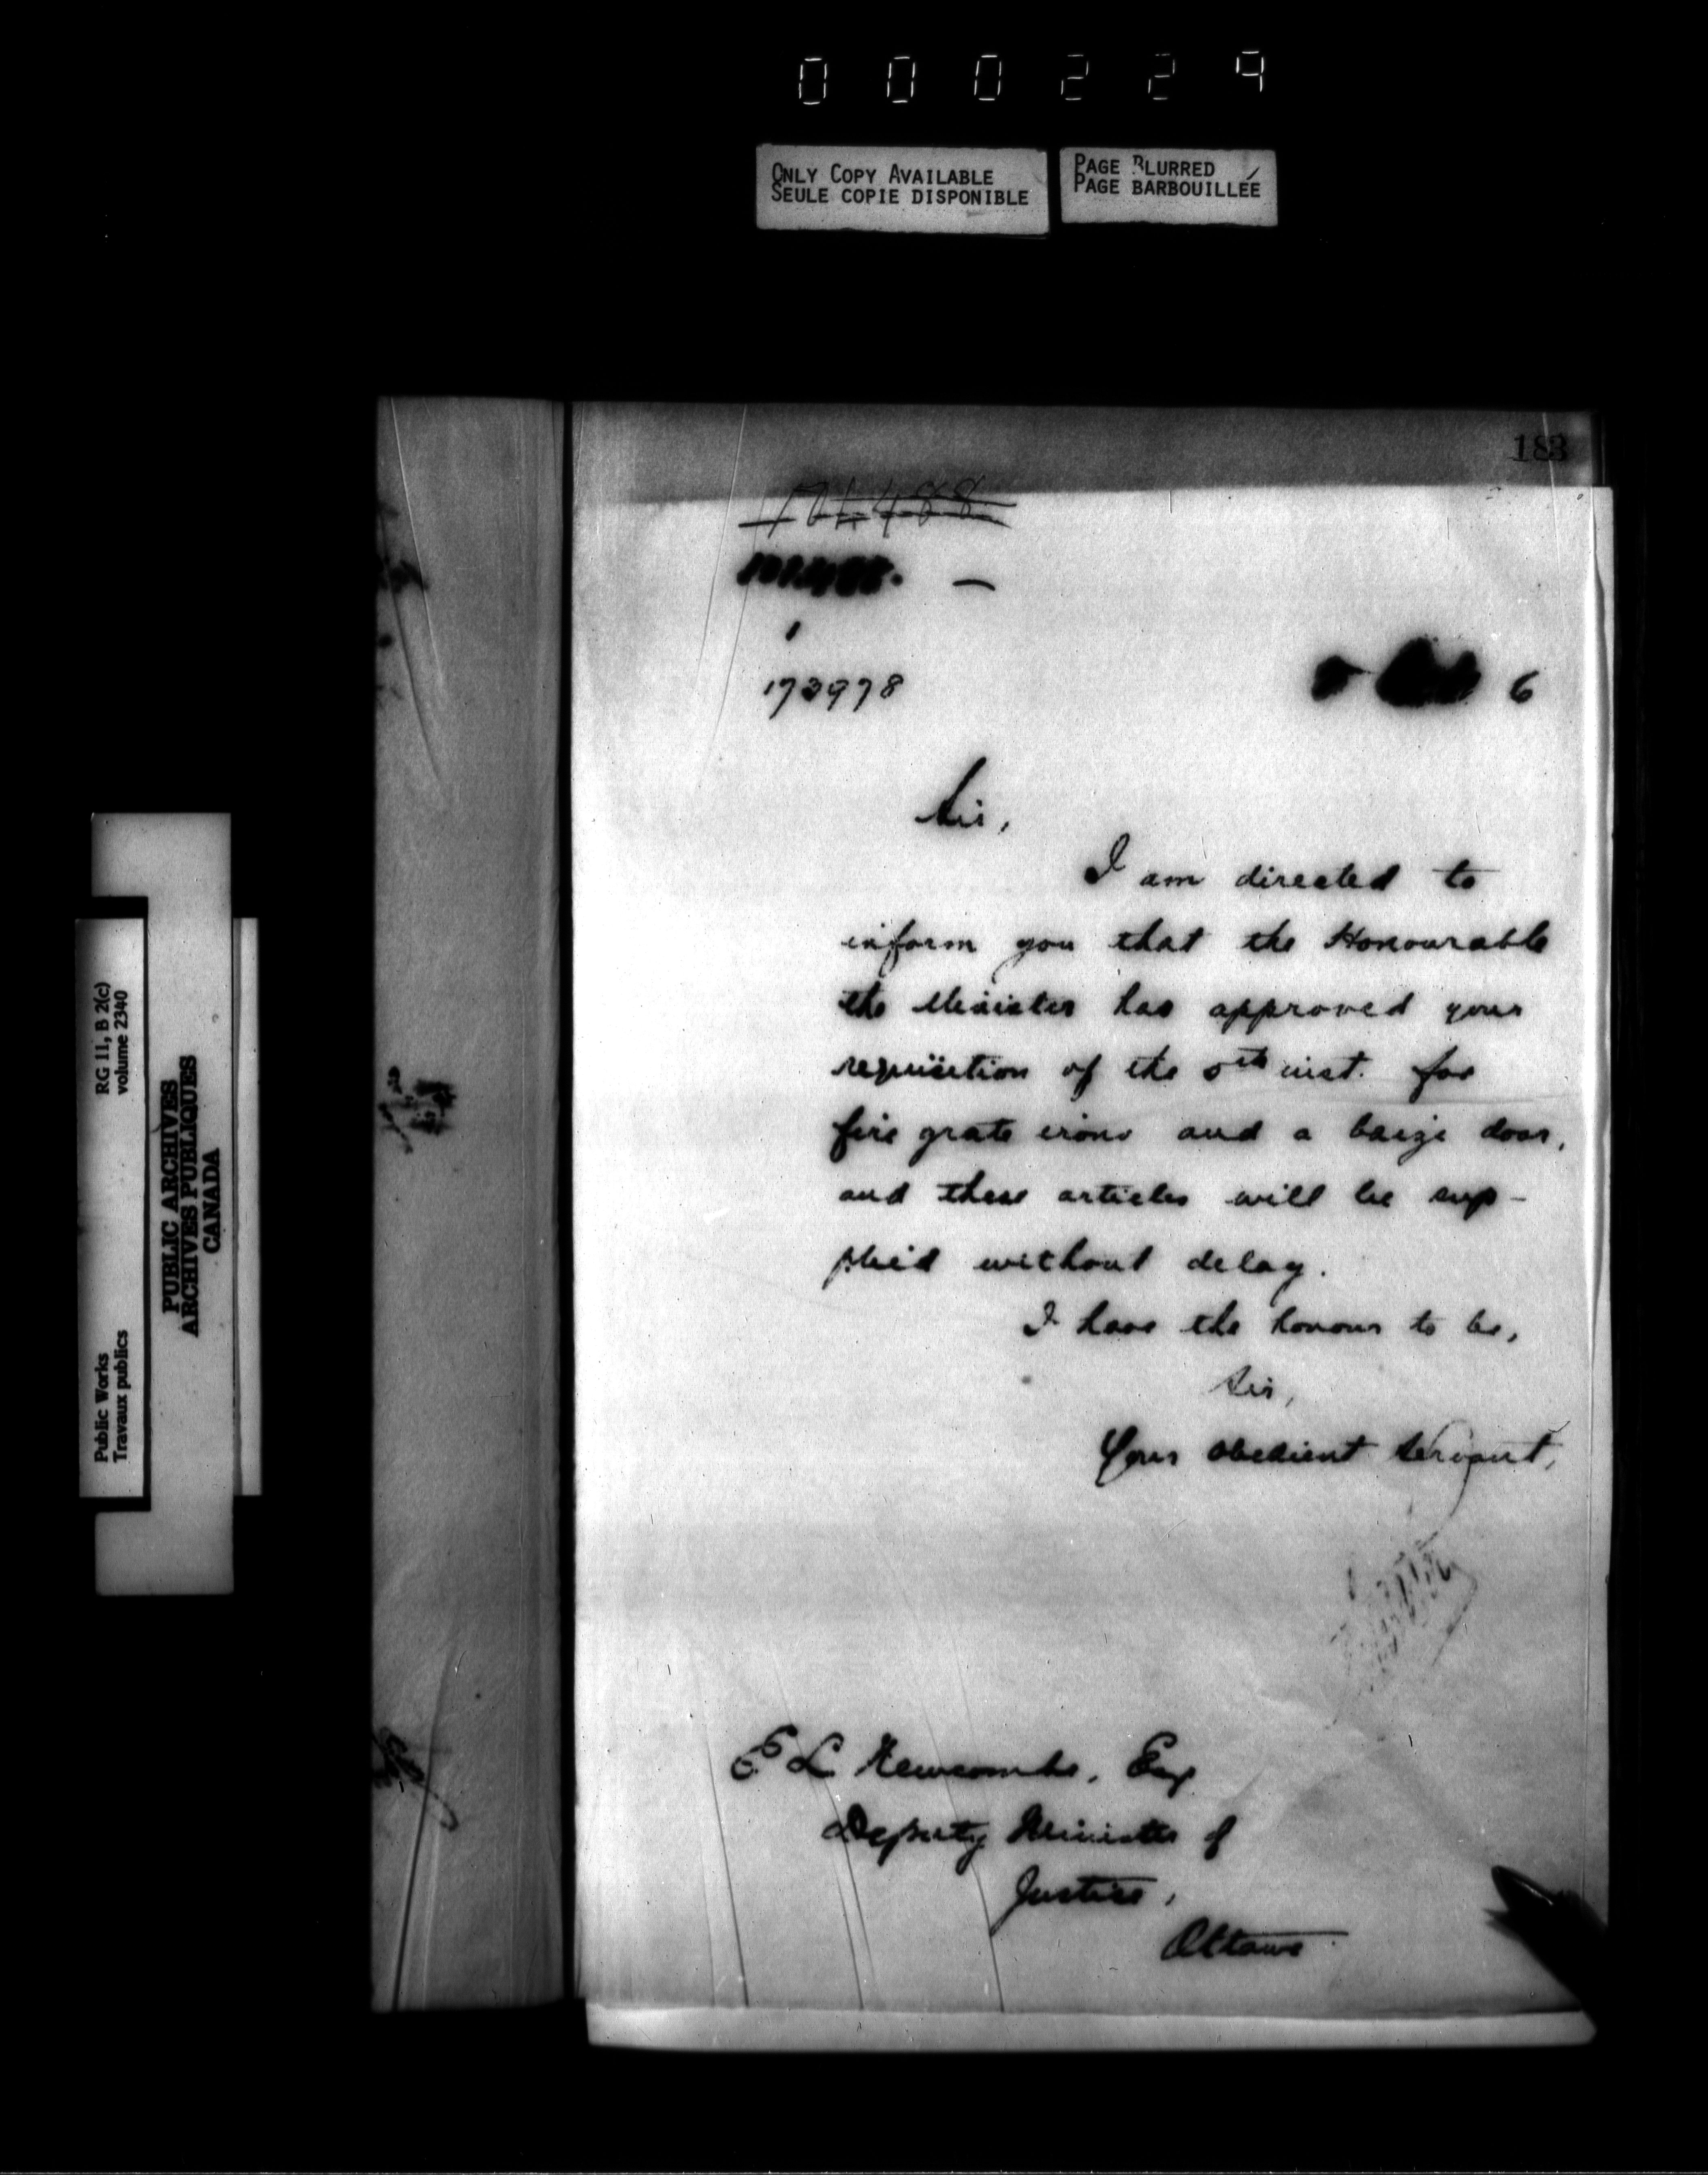 000229
ONLY COPY AVAILABLE
SEULE COPIE DISPONIBLE
PAGE BLURRED
PAGE BARBOUILLÉE
RG 11, B 2(c)
volume 2340
Public Works
Travaux publics
PUBLIC ARCHIVES
ARCHIVES PUBLIQUES
CANADA
183
173978
6
Sir,
I am directed to
inform you that the Honourable
the Minister has approved your
requisition of the 5th inst. for
fire grate irons and a baize door,
and these articles will be sup-
plied without delay.
I have the honour to be,
Sir,
Your obedient servant,
E L Newcombe, Esq
Deputy Minister of
Justice,
Ottawa